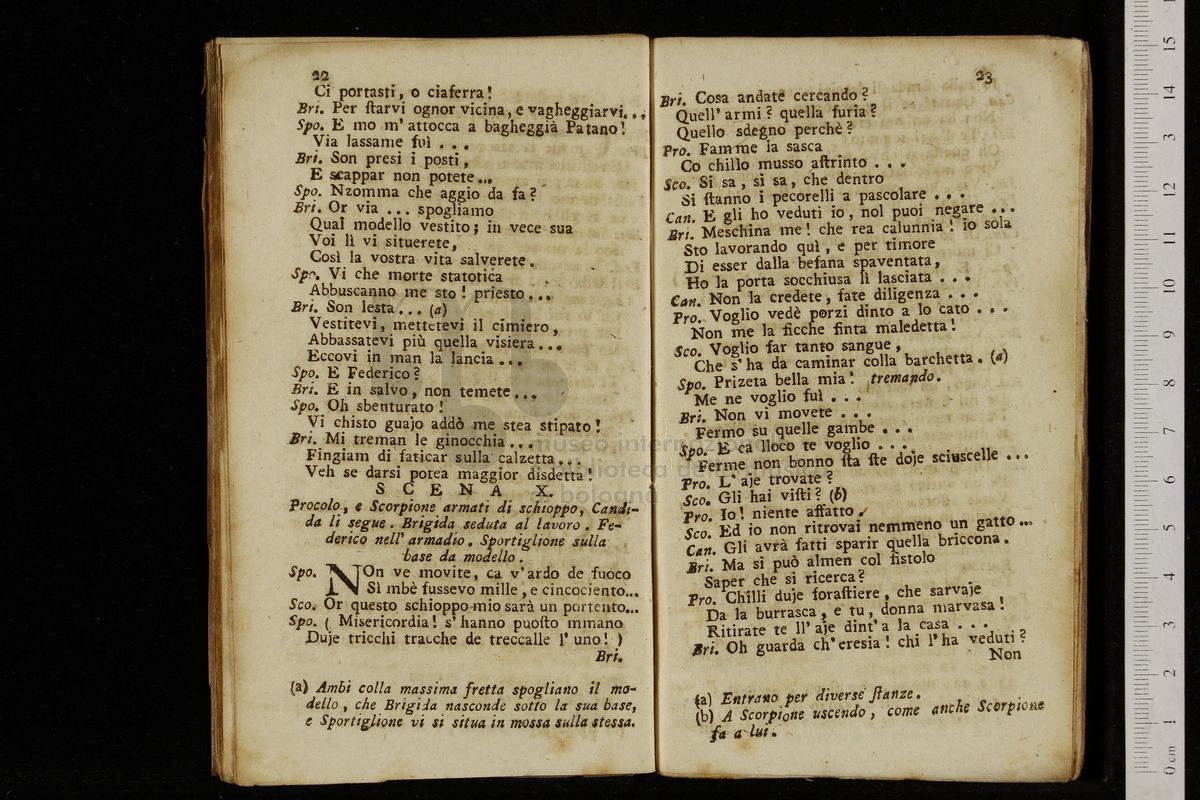 22
Ci portasti, o ciaferra!
Bri. Per ſtarvi ognor vicina, e vagheggiarvi...
Spo. E mo m' attocca a bagheggià Patano!
Via lassame fuì ...
Bri. Son presi i posti,
E scappar non potete...
Spo. Nzomma che aggio da fa?
Bri. Or via ... spogliamo
Qual modello vestito; in vece sua
Voi lì vi situerete,
Così la vostra vita salverete.
Spo. Vi che morte statotica
Abbuscanno me sto! priesto...
Bri. Son lesta... (a)
Vestitevi, mettetevi il cimiero,
Abbassatevi più quella visiera...
Eccovi in man la lancia...
Spo. E Federico?
Bri. E in salvo, non temete...
Spo. Oh sbenturato!
Vi chisto guajo addò me stea stipato!
Bri. Mi treman le ginocchia...
Fingiam di faticar sulla calzetta...
Veh se darsi potea maggior disdetta!
SCENA X.
Procolo, e Scorpione armati di schioppo, Candi-
da li segue. Brigida seduta al lavoro. Fe-
derico nell' armadio. Sportiglione sulla
base da modello.
Spo. NOn ve movite, ca v' ardo de fuoco
Sì mbè fussevo mille, e cincociento...
Sco. Or questo schioppo mio sarà un portento...
Spo. ( Misericordia! s' hanno puoſto mmano
Duje tricchi tracche de treccalle l' uno! )
Bri.
(a) Ambi colla massima fretta spogliano il mo-
dello, che Brigida nasconde sotto la sua base,
e Sportiglione vi si situa in mossa sulla stessa.
23
Bri. Cosa andate cercando?
Quell' armi? quella furia?
Quello sdegno perchè?
Pro. Famme la sasca
Co chillo musso aſtrinto ...
Sco. Si sa, si sa, che dentro
Si ſtanno i pecorelli a pascolare ...
Can. E gli ho veduti io, nol puoi negare ...
Bri. Meschina me! che rea calunnia! io sola
Sto lavorando quì, e per timore
Di esser dalla befana spaventata,
Ho la porta socchiusa lì lasciata ...
Can. Non la credete, fate diligenza ...
Pro. Voglio vedè porzi dinto a lo cato ...
Non me la ficche finta maledetta!
Sco. Voglio far tanto sangue,
Che s' ha da caminar colla barchetta. (a)
Spo. Prizeta bella mia! tremando.
Me ne voglio fuì ...
Bri. Non vi movete ...
Fermo su quelle gambe ...
Spo. E ca lloco te voglio ...
Ferme non bonno ſta ſte doje sciuscelle ...
Pro. L' aje trovate?
Sco. Gli hai viſti? (b)
Pro. Io! niente affatto.
Sco. Ed io non ritrovai nemmeno un gatto...
Can. Gli avrà fatti sparir quella briccona.
Bri. Ma si può almen col fistolo
Saper che si ricerca?
Pro. Chilli duje foraſtiere, che sarvaje
Da la burrasca, e tu, donna marvasa!
Ritirate te ll' aje dint' a la casa ...
Bri. Oh guarda ch' eresia! chi l' ha veduti?
Non
(a) Entrano per diverse ſtanze.
(b) A Scorpione uscendo, come anche Scorpione
fa a lui.
museo internaz
biblioteca de
bologna
0 cm 1 2 3 4 5 6 7 8 9 10 11 12 13 14 15